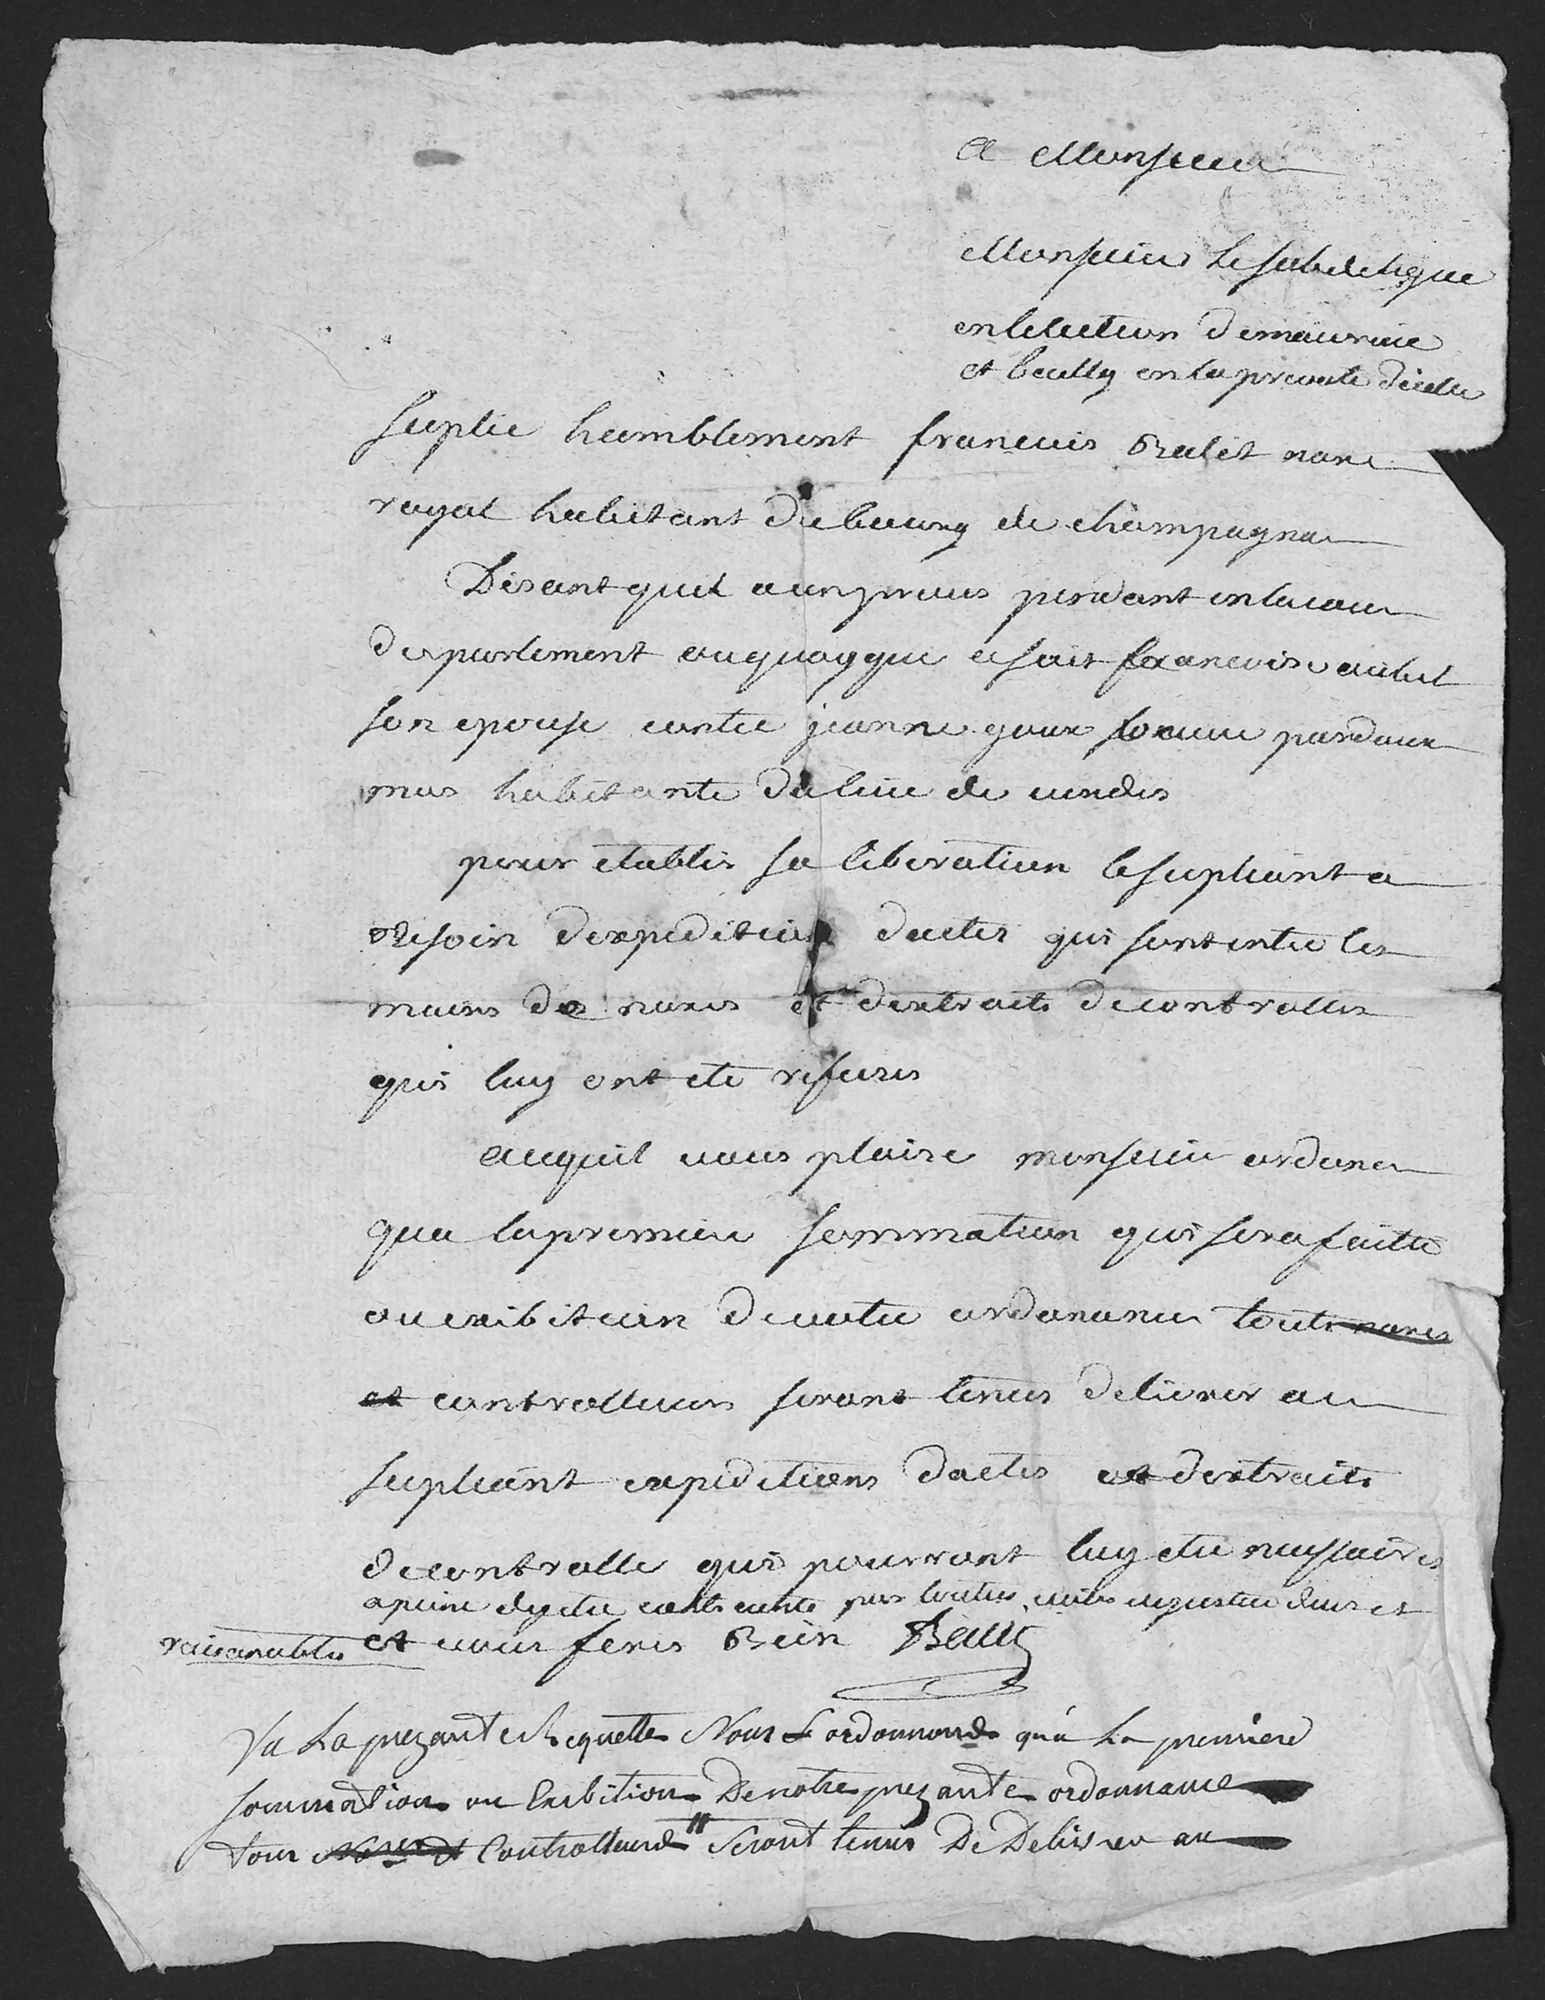 a Monsieur
Monsieur le subdelegué
en lelection de mauriac
et bailly en la prevoté dicelle
suplie humblement francois Balet nore
royal habitant du bourg de champagnac
Disant quil a un proces pendant en la cour
de parlement au quoy que a fait francoise
son epouse contre jeanne
mas habitante du lieu de
pour etablir sa liberation le supliant a
Besoin dexpedition dactes qui sont entre les
mains des nores et dextraits de controlles
qui luy ont eté refusés
au quil vous plaise monsieur ordoner
qua la premiere sommation qui sera faitte
ou exibition de votre ordonance touts nores
et controlleurs seront tenus deliverer au
supliant expeditions dactes et dextraits
de controlle qui pourront luy etre necessaires
a peine dy etre contraints par toutes voies
raisonables et vous ferés Bein Balet
Vu La prezante Requette Nous ordonnons qu'a La premiere
sommation ou Exibition De notre prezante ordonnance
tous Nores et Controlleurs seront tenus De Delivrer au